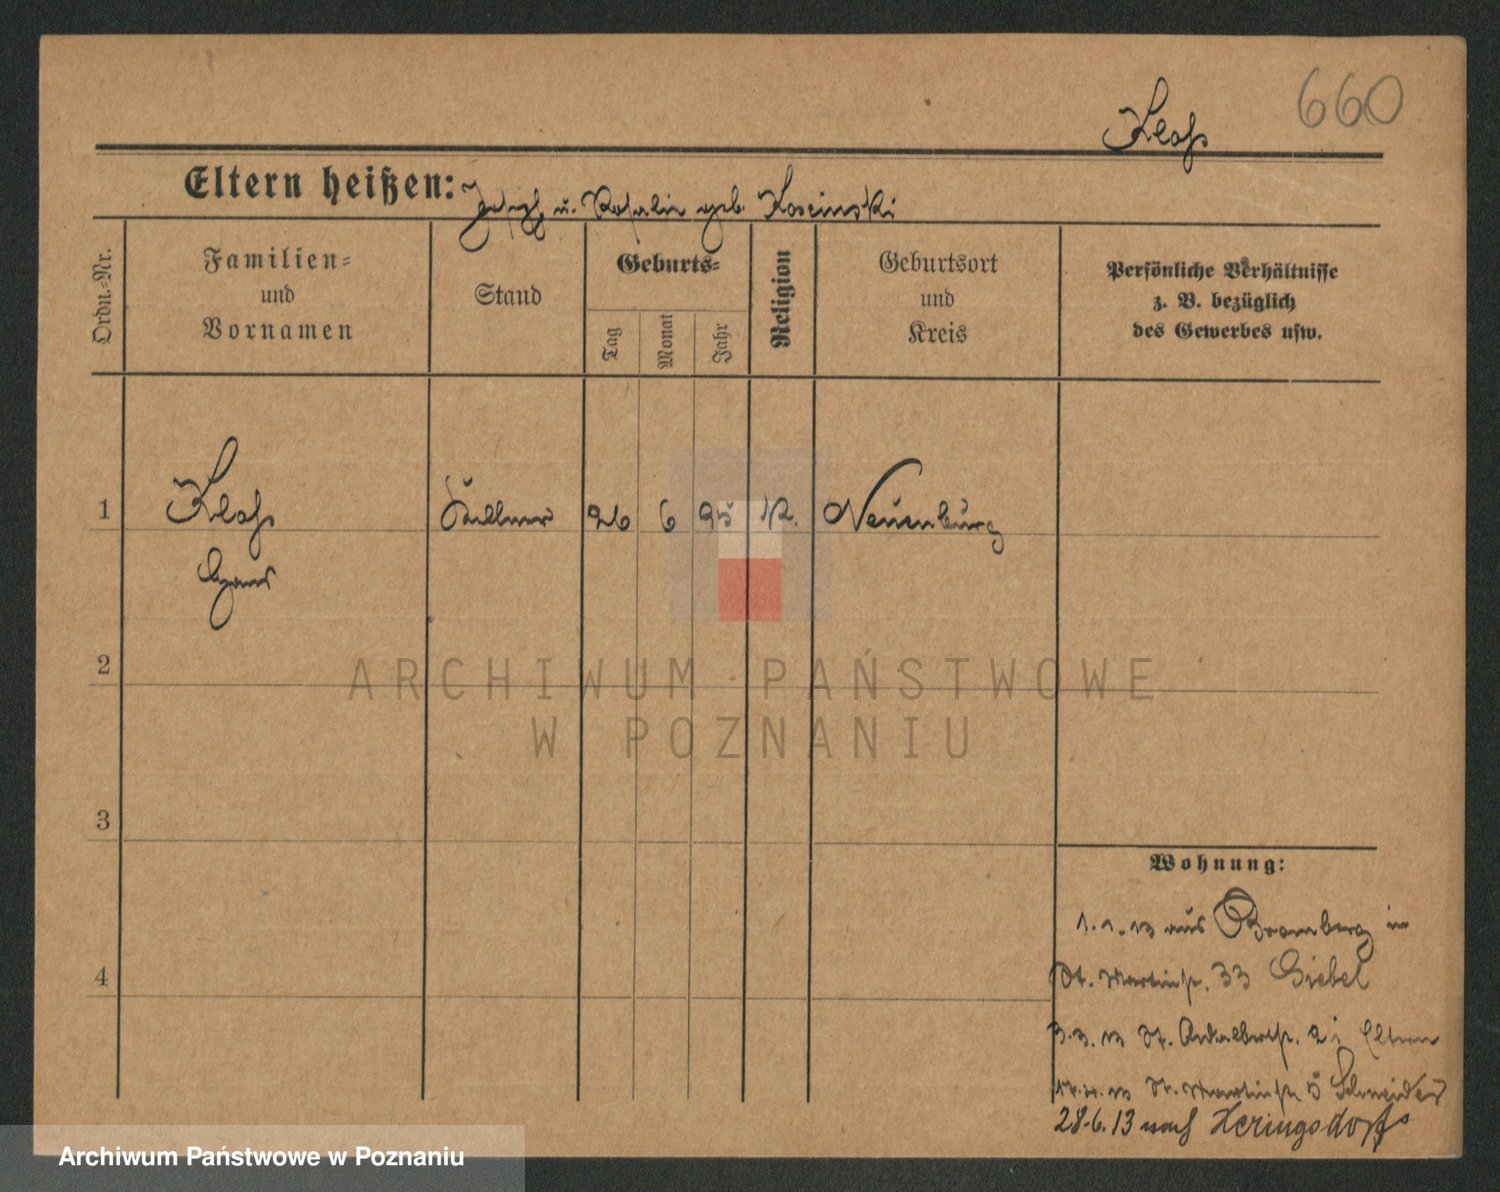 660
Klahs
Eltern heißen: Joseph u. Rosalie geb. Koscinski
Ordn.-Nr.
Familien-
und
Vornamen
Stand
Geburts-
Tag
Monat
Jahr
Religion
Geburtsort
und
Kreis
Persönliche Verhältnisse
z. B. bezüglich
des Gewerbes usw.
1
Kellner 26 6 95 K. Neuenburg
Hans
2
ARCHIWUM PAŃSTWOWE
W POZNANIU
3
Wohnung:
1.1.13 aus Bromberg in
St. Martinstr. 33 Giebel
4
3.3.13 St. Adalbertstr. 2 i Eltern
St. Martinstr. 5 Schneider
28.6.13 nach Heringsdorf
Archiwum Państwowe w Poznaniu